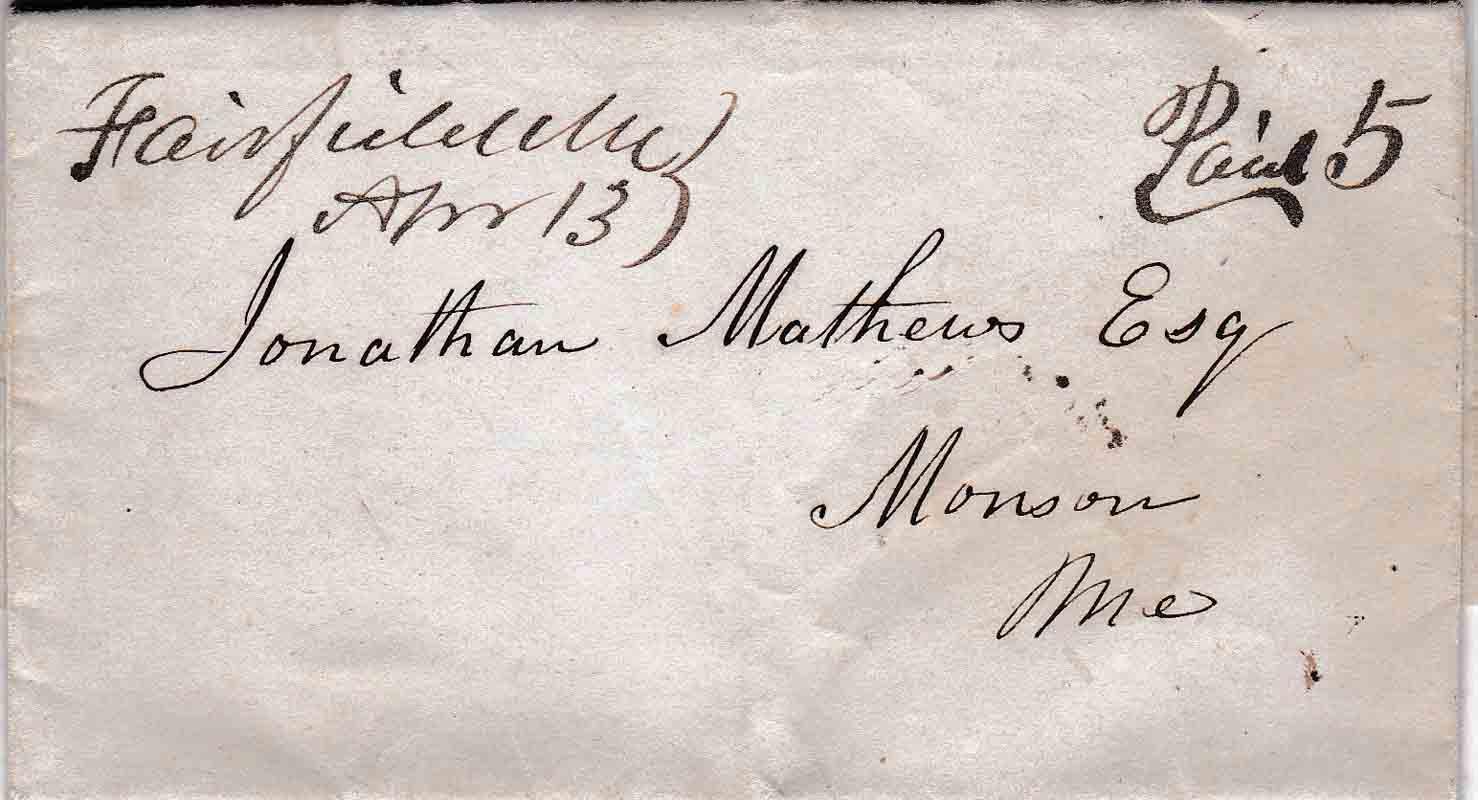 Fairfield Me
Apr 13
Paid 5
Jonathan Mathews Esq
Monson
Me